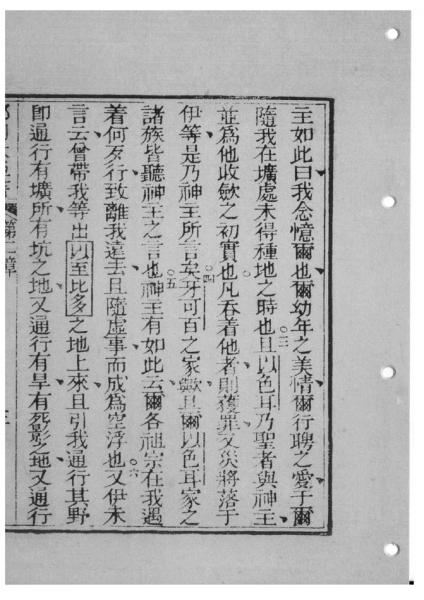 主如此曰我念憶爾也爾幼年之美情爾行聘之愛于爾
隨我在壙處未得種地之時也且以色耳乃聖者與神主
並為他收斂之初實也凡吞着他者則獲罪又災將落于
伊等是乃神主所言矣牙可百之家歟且爾以色耳家之
諸族皆聽神主之言也神主有如此云爾各祖宗在我遇
着何歹行致離我遠去且隨虛事而成為空浮也又伊未
言云曾帶我等出以至比多之地上來且引我通行其野
即通行有壙所有坑之地又通行有旱有死影之地又通行
第二章